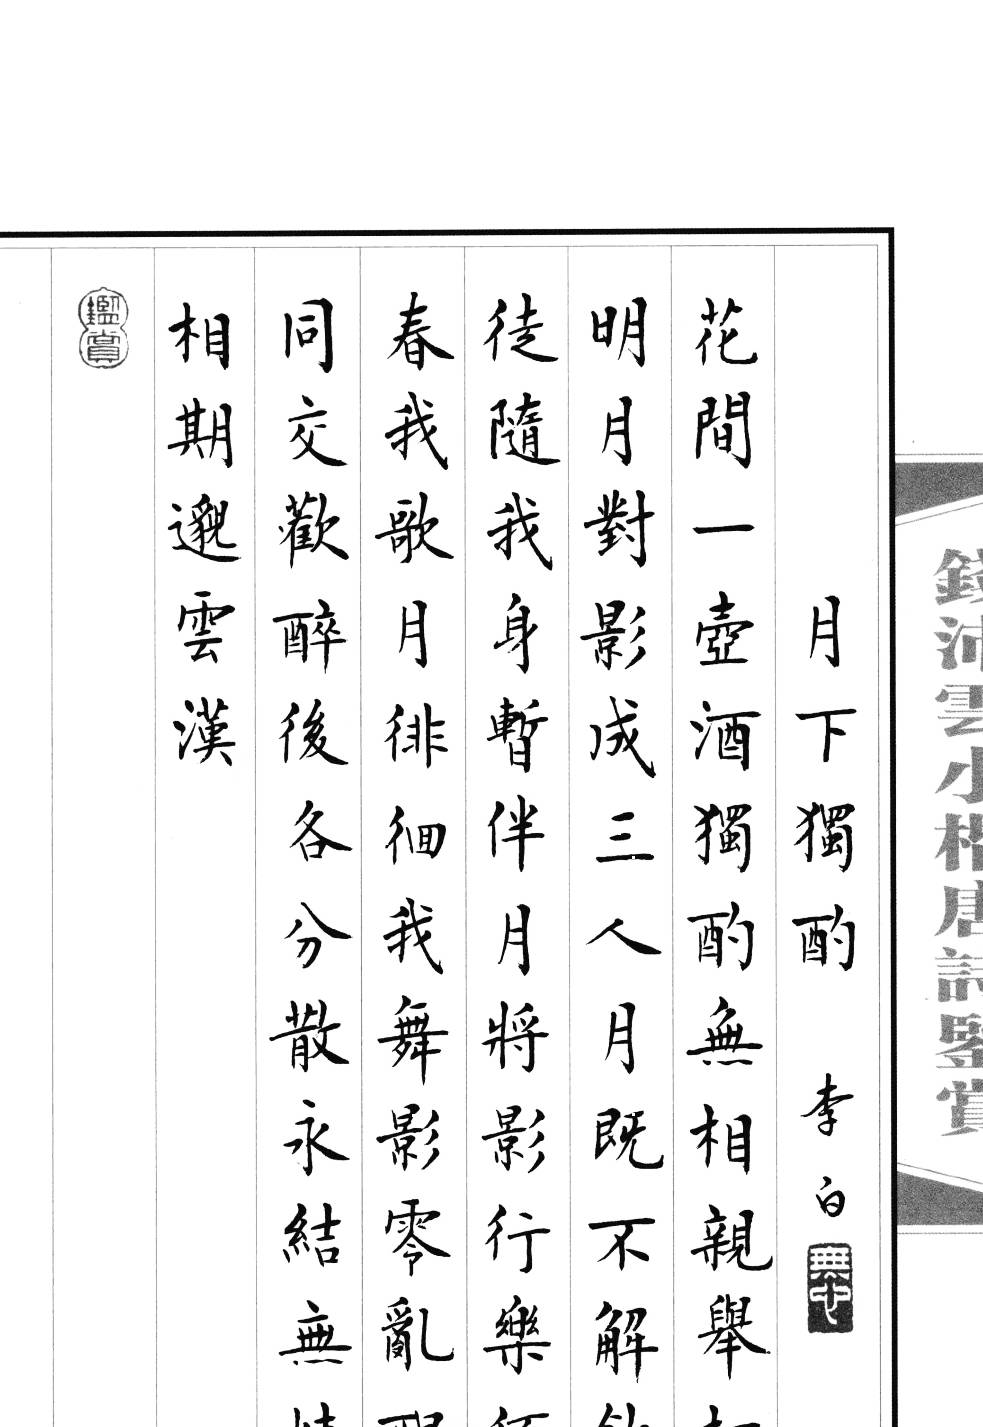 錢沛雲小楷唐詩鑒賞
月下獨酌 李白
花間一壺酒獨酌無相親舉
明月對影成三人月既不解
徒隨我身暫伴月將影行樂
春我歌月徘徊我舞影零亂
同交歡醉後各分散永結無
相期邈雲漢
鑑賞